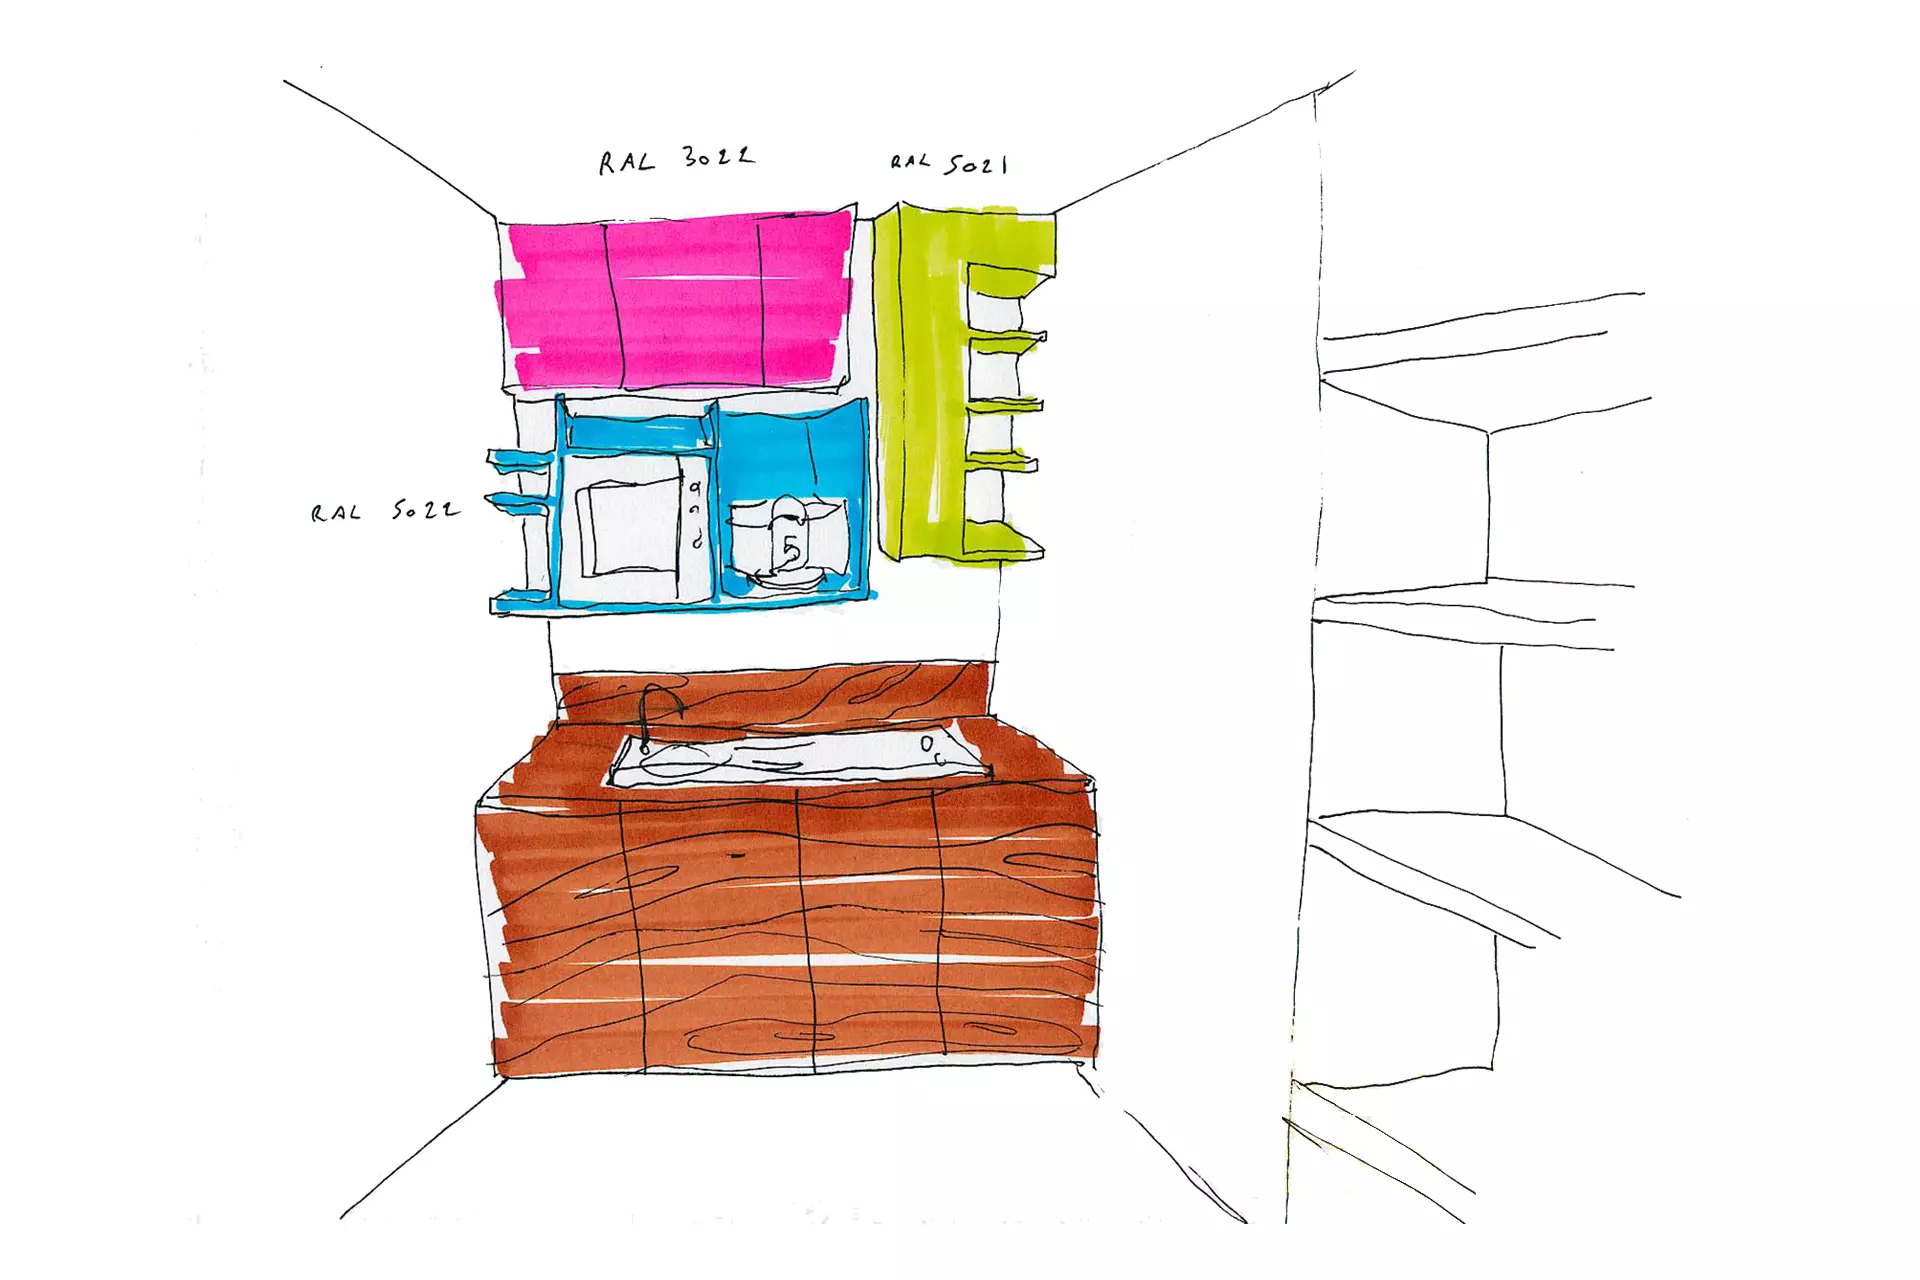 RAL 3022
RAL 5021
RAL 5022
5